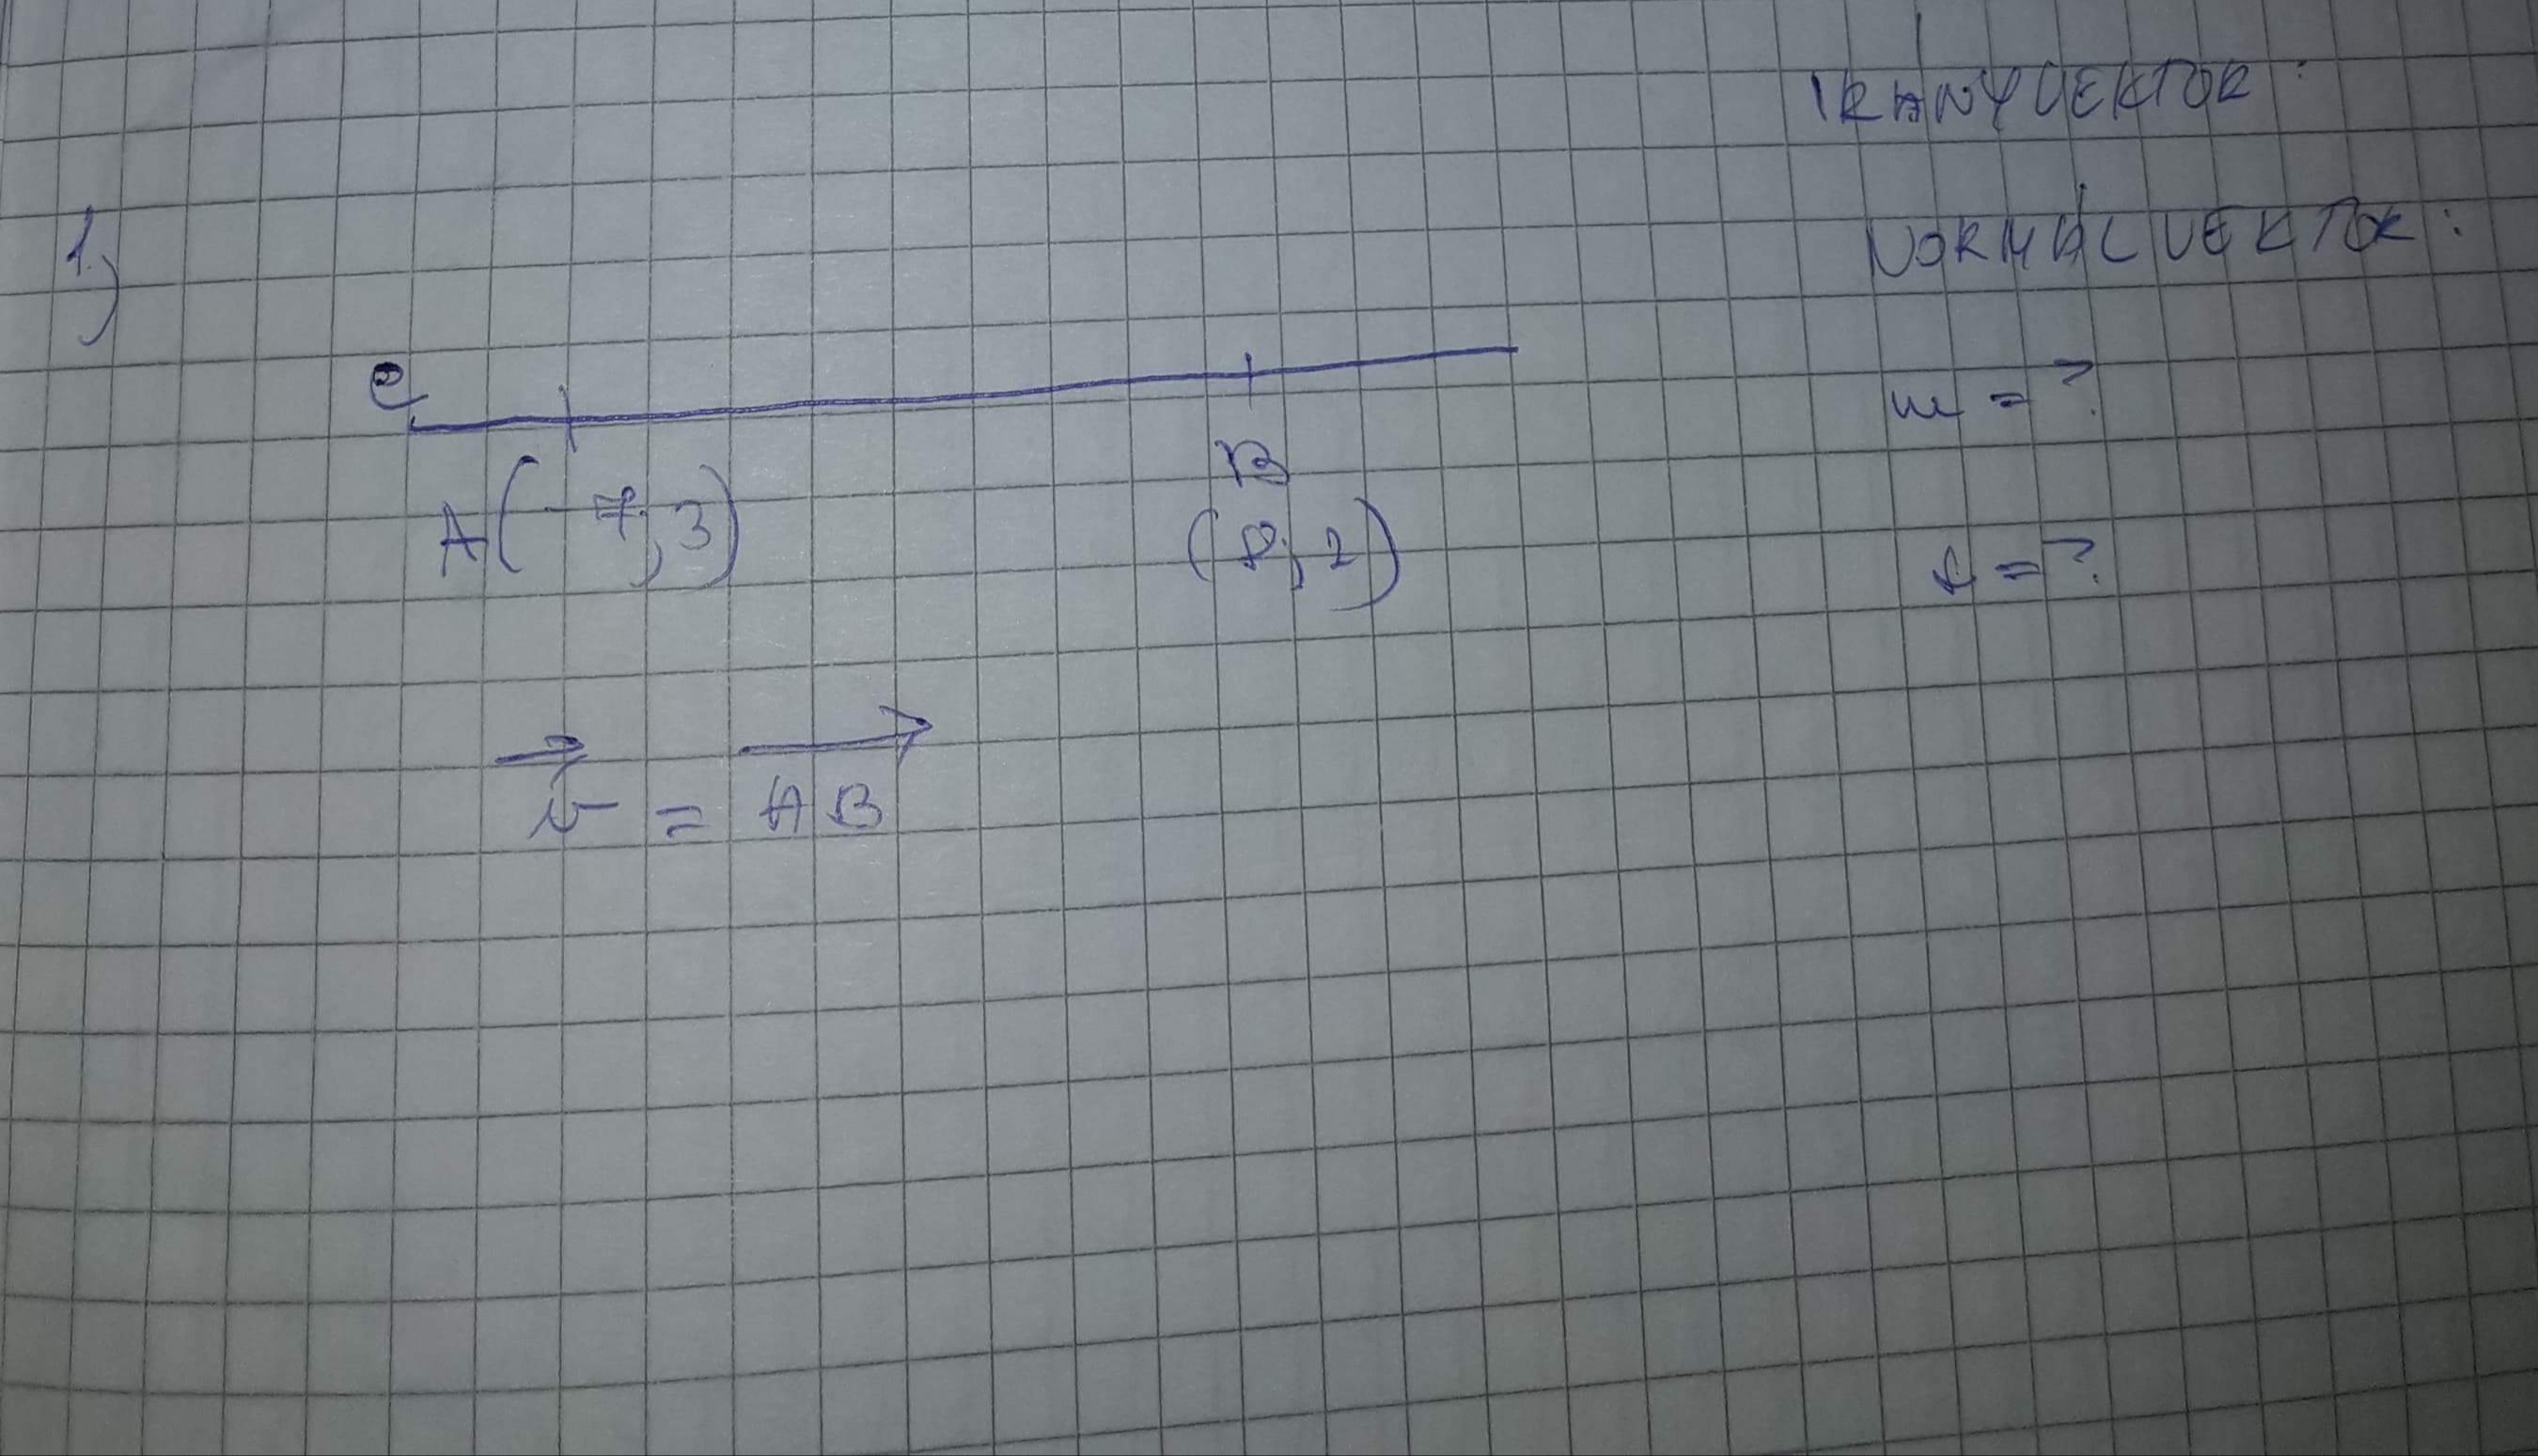 IRÁNYVEKTOR:
NORMÁLVEKTOR:
1.)
e
m = ?
B
A(-7; 3)
(8; 2)
v = AB